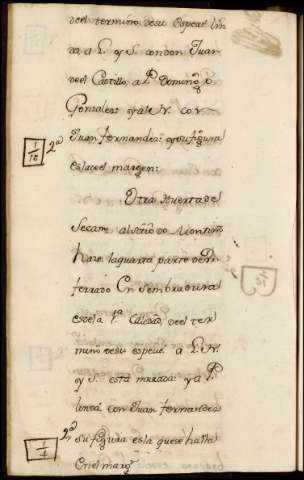 del termino desu especie lin
da, a L. y S. con don Juan
del Castillo, a P. Domingo
Gonzales: y al N. con
Juan Fernandez: y su figura
es la del margen:
1/16 2ª
Otra Huerta de
Secano al sitio do Montiño
hace la quarta parte de un
ferrado En Sembradura
es de la 1ª Calidad del ter
mino de su especie. a L. N.
y S. esta murada: y a P.
linda con Juan Fernandez
su figura es la que se halla
En el marg.
1/4 2ª